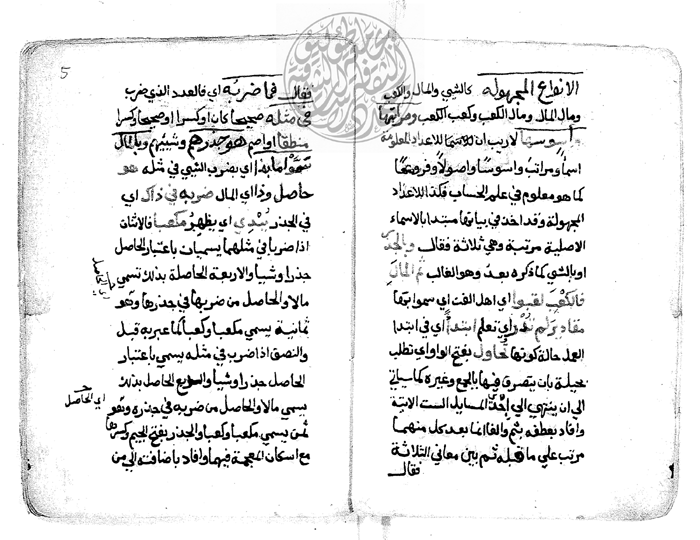 الانواع المجهولة كالشي والمال والكعب
ومال المال ومال الكعب وكعب الكعب ومراتبها
واسوسها لاريب ان للاعداد المعلومة
اسماء ومراتب واسوسا واصولا وفروعا
كما هو معلوم في علم الحساب فكذا للاعداد
المجهولة وقد اخذ في بيانها مبتدا بالاسماء
الاصلية مرتبة وهي ثلاثة فقال وبالجذر
او بالشي كما ذكره بعد وهو الغالب ثم المال
فالكعب لقبوا اي اهل الفن اي سموا بها
مقادير لم تدر اي تعلم ابتدا اي في ابتدا
العمل حالة كونها تحاول بفتح الواو اي تطلب
بحيلة بان يتصرف فيها بالجمع وغيره كما سياتي
الي ان ينتهي الي احدي المسايل الست الاتية
وافاد بعطفه بثم والفا انما بعد كل منهما
مرتب علي ما قبله ثم بين معاني الثلاثة
فقال
5
فقال فما ضربه اي فالعدد الذي ضرب
في مثله صحيحا كان او كسرا او صحيحا وكسرا
منطقا او اصم هو جذرهم وشيئهم وبالمال
سموا ما بدا اي بضرب الشي في مثله هو
حاصل وذا اي المال ضربه في ذاك اي
في الجذر يبدي اي يظهر مكعبا فالاثنان
اذا ضربا في مثلهما يسميان باعتبار الحاصل
جذرا وشيا والاربعة الحاصلة بذلك تسمي
مالا والحاصل من ضربها في جذرها وهو
ثمانية يسمي مكعبا وكعبا كما عبر به قبل
والنصف اذا ضرب في مثله يسمي باعتبار
الحاصل جذرا وشيا والربع الحاصل بذلك
يسمي مالا والحاصل من ضربه في جذره وهو
ثمن يسمي مكعبا وكعبا والجذر بفتح الجيم وكسرها
مع اسكان المعجمة فيهما وافاد باضافته الي من
اي الحاصل
اي الحاصل